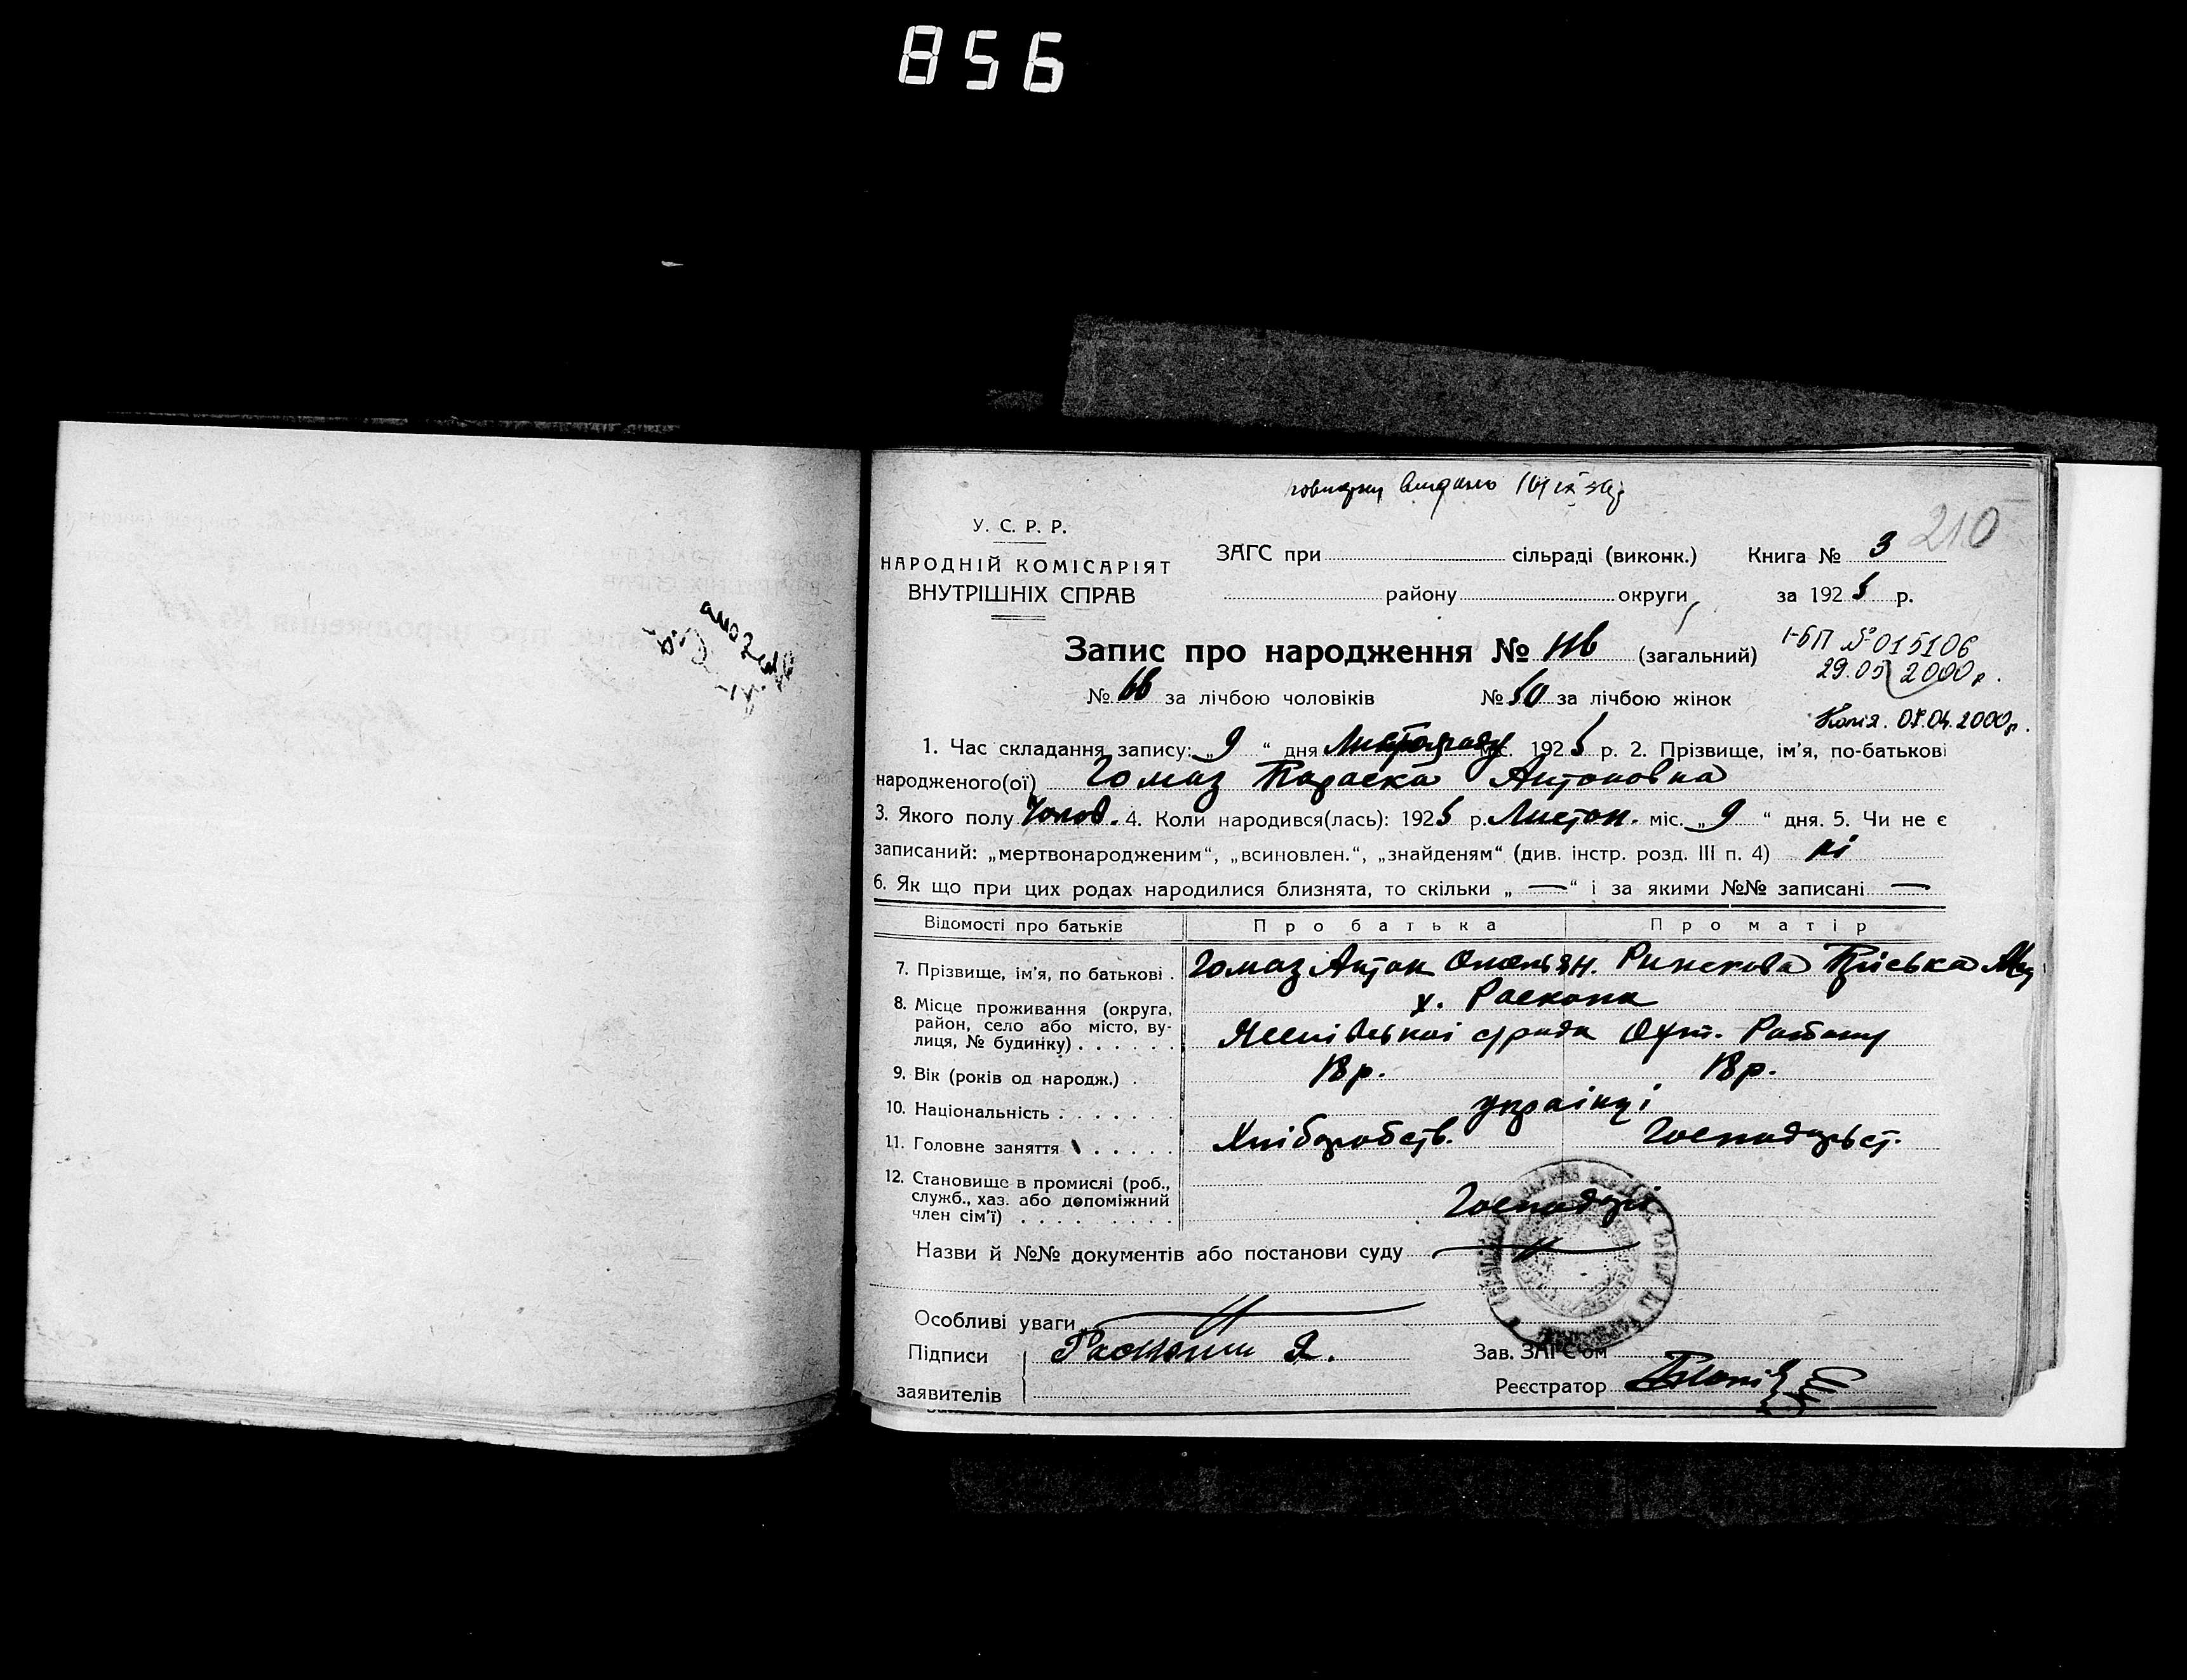 856
210
У. С. Р. Р.
НАРОДНІЙ КОМІСАРІЯТ
ВНУТРІШНІХ СПРАВ
ЗАГС при сільраді (виконк.) Книга № 3
району округи за 1925 р.
Запис про народження № 116 (загальний)
1-БП № 015106
29.05 2000р.
№ 66 за лічбою чоловіків № 50 за лічбою жінок
Копія. 07.04.2000р.
1. Час складання запису: „ 9 “ дня Листопаду міс. 1925 р. 2. Прізвище, ім'я, по-батькові
народженого(ої) Гомаз Параска Антоновна
3. Якого полу Чолов. 4. Коли народився(лась): 1925 р. Листоп. міс. „ 9 “ дня. 5. Чи не є
записаний: „мертвонародженим“, „всиновлен.“, „знайденям“ (див. інстр. розд. III п. 4) ні
6. Як що при цих родах народилися близнята, то скільки „ — “ і за якими №№ записані —
Відомості про батьків Про батька Про матір
7. Прізвище, ім'я, по батькові . Гомаз Антон Омелян.
8. Місце проживання (округа,
район, село або місто, ву-
лиця, № будинку) . . . . . .
х. Раскопа
9. Вік (років од народж.) . 18р. 18р.
10. Національність . . . . . . . українці
11. Головне заняття . . . . . Хліборобств. Господарьст.
12. Становище в промислі (роб.,
служб., хаз. або допоміжний
член сім'ї) . . . . . . . . .
Господарі
Назви й №№ документів або постанови суду
Особливі уваги
Підписи
заявителів
Зав. ЗАГС'ом
Реєстратор